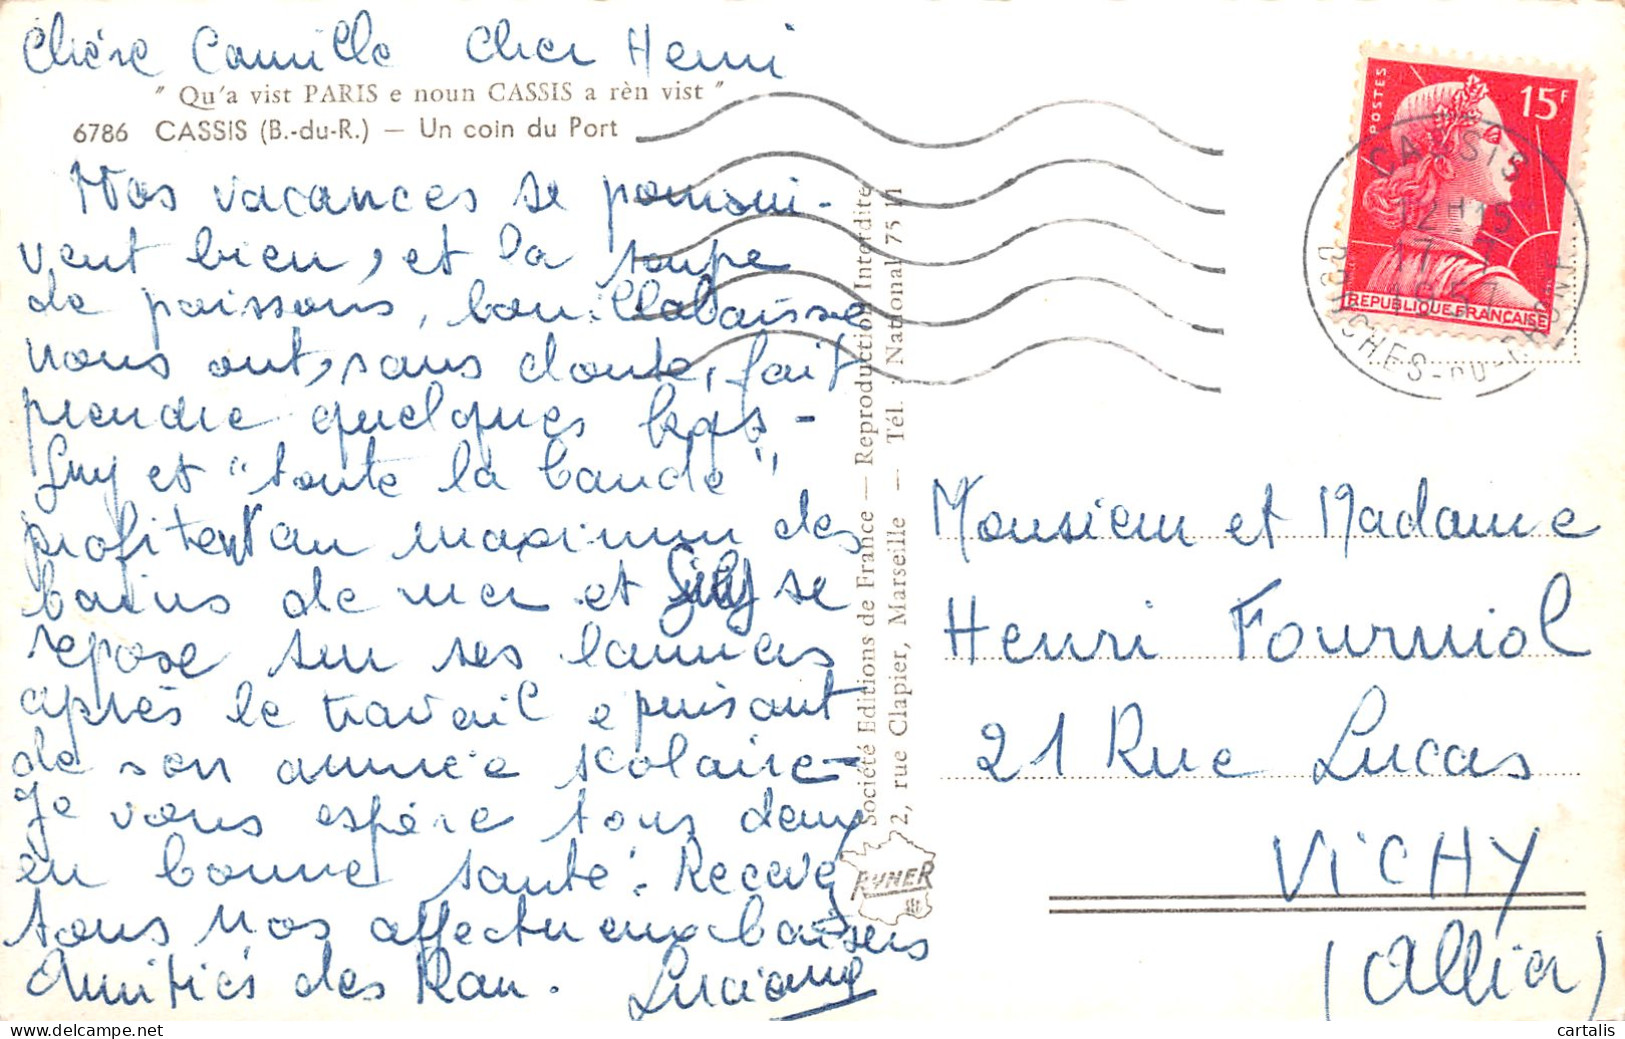 Chère Camille Cher Henri
" Qu'a vist PARIS e noun CASSIS a rèn vist "
6786 CASSIS (B.-du-R.) — Un coin du Port
Nos vacances se poursui-
vent bien, et la soupe
de poissons, bouillabaisse
nous ont, sans doute, fait
prendre quelques kgs -
Guy et "toute la bande"
profitent au maximum des
bains de mer et se
repose sur ses lauriers
après le travail épuisant
de son année scolaire -
Je vous espère tous deux
en bonne santé. Recevez
tous nos affectueux baisers
Amitiés des Rau. Lucienne
Société Editions de France — Reproduction Interdite
72, rue Clapier, Marseille — Tél. : National 75
RYNER
POSTES
15F
REPUBLIQUE FRANÇAISE
CASSIS
12H15
17-7
1957
BOUCHES-DU-RHONE
Monsieur et Madame
Henri Fourniol
21 Rue Lucas
VICHY
(Allier)
cartalis